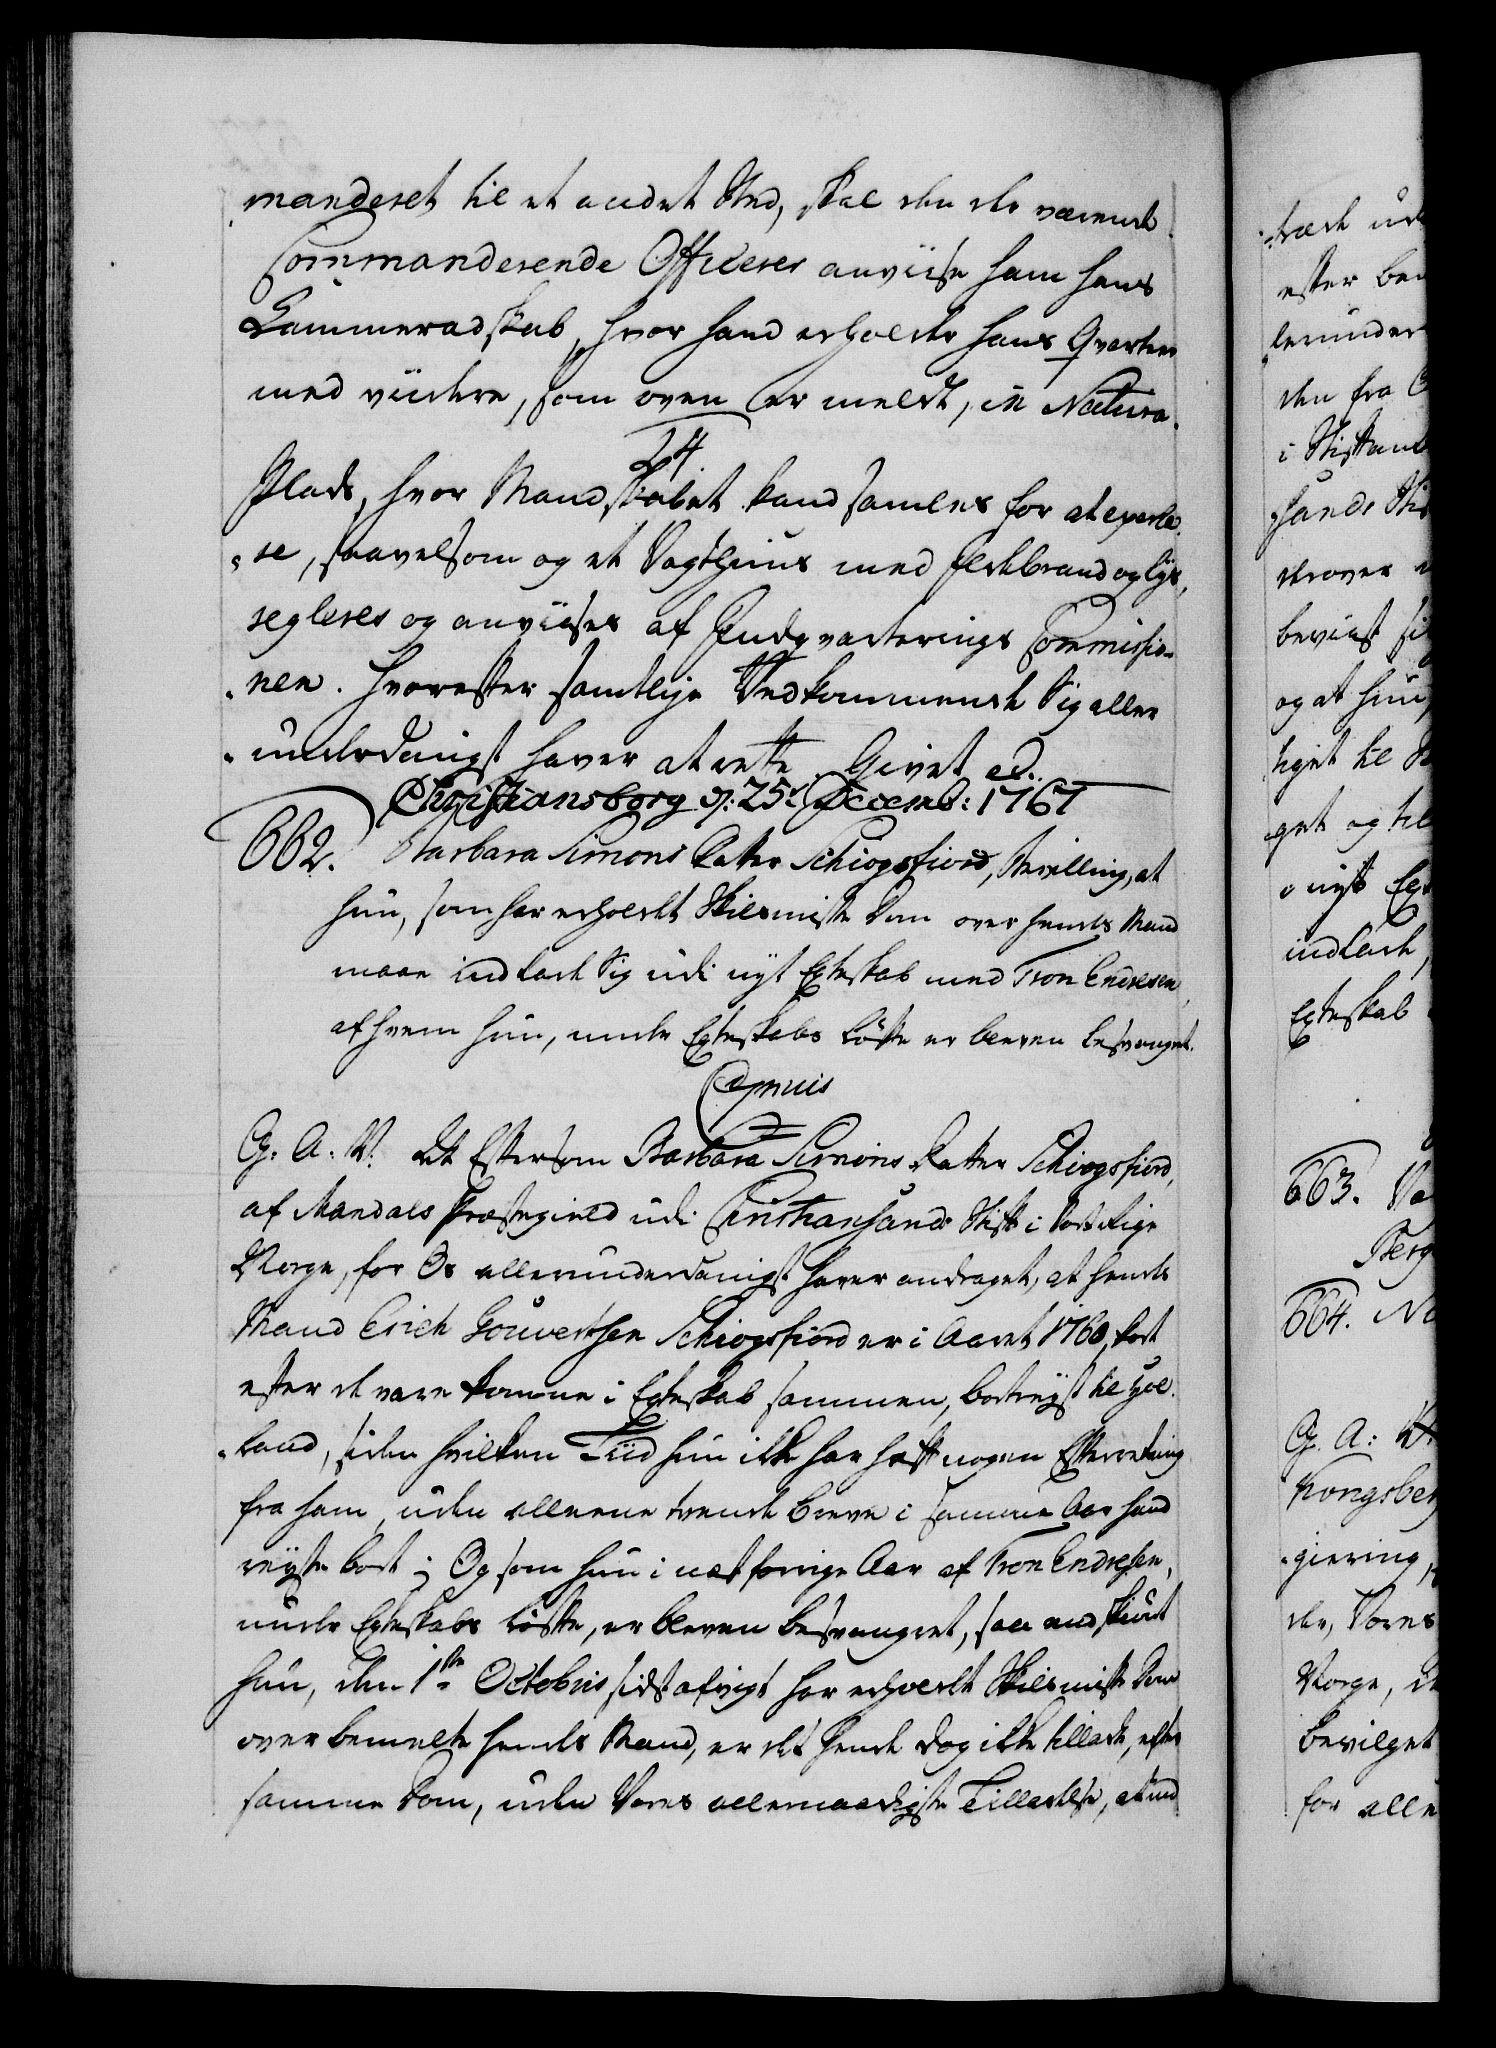 manderet til et andet Sted, skal den der værende
Commanderende Officerer anviise ham hans
Cammeradskab, hvor hand erholder hans Qvarteer
med viidere, som oven er meldt, in Natura.
14.
Plads, hvor Mandskabet kand samles for at exerce-
re, saavelsom og et Vagthuus med Ildebrand og Lys,
regleres og anviises af Indqvarterings Commissio-
nen. Hvorefter samtlige Vedkommende Sig aller
underdanigst haver at rette. Givet etc.
Christiansborg d: 25de Decemb: 1767
662. Barbara Simons Datter Schiogsfiord, Bevilling, at
hun, som har erholdt Skilsmisse Dom over hendes Mand
maae indlade Sig udi nyt Egteskab med Tron Endresen
af hvem hun, under Egteskabs Løfte er bleven besvangret.
Cop:
G. A. V. at Eftersom Barbara Simons Datter Schiogsfiord,
af Mandals Præstegield udi Christiansands Stift i Vort Rige
Norge, for Os allerunderdanigst haver andraget, at hendes
Mand Erich Gouvertsen Schiogsfiord er i Aaret 1760, kort
efter de vare komne i Egteskab sammen, bortreyst til Hol-
land, siden hvilken Tiid hun ikke har haft nogen Efterretning
fra ham, uden alleene tvende Breve i samme Aar hand
reyste bort; Og som hun i næst forrige Aar af Tron Endresen,
under Egteskabs Løfte, er bleven besvangret, saa endskiønt
hun, den 1ste Octobris sidstafvigt har erholdt Skilsmisse Dom
over bemelte hendes Mand, er det hende dog ikke tilladt, efter
samme Dom, uden Vores allernaadigste Tilladelse, at ind
efter
Egteskab
663.
Berg
664.
G. A: V.
Kongsberg
giering,
Norge,
bevilget
for alle